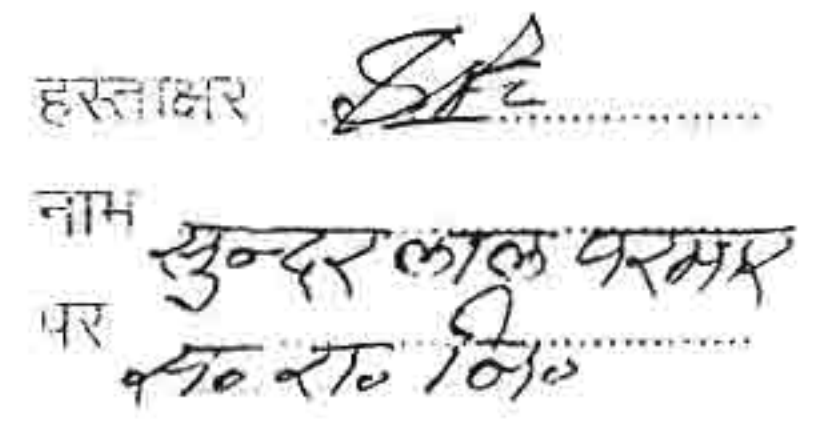 हस्ताक्षर
नाम सुन्दर लाल परमार
पर स० रा० नि०